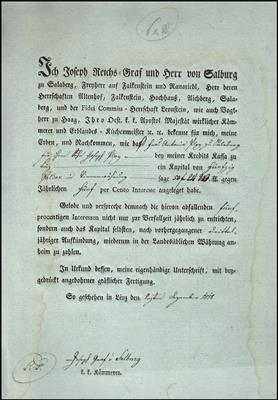 Ich Joseph Reichs-Graf und Herr von Salburg
zu Salaberg, Freyherr auf Falkenstein und Ranariedl, Herr deren
Herrschaften Altenhof, Falkenstein, Hochhauß, Aichberg, Sala-
berg, und der Fidei Commis-Herrschaft Leonstein, wie auch Vogt-
herr zu Haag, Ihro Oest. k. k. Apostol. Majestät wirklicher Käm-
merer und Erblandes-Küchenmeister ꝛc. ꝛc. bekenne für mich, meine
Erben, und Nachkommen, wie daß
bey meiner Kredits Kassa zu
ein Kapital von fünfzig
sage 50 fl. gegen
Jährlichen fünf per Cento Interesse angeleget habe.
Gelobe und verspreche demnach die hievon abfallenden fünf
procentigen Interessen nicht nur zur Verfallzeit jährlich zu entrichten,
sondern auch das Kapital selbsten, nach vorhergegangener
jähriger Aufkündung, wiederum in der Landesüblichen Währung an-
heim zu zahlen.
In Urkund dessen, meine eigenhändige Unterschrift, mit bey-
gedruckt angebohrner gräflicher Fertigung.
So geschehen in Linz den
Joseph Graf v Salburg
k. k. Kämmerer.